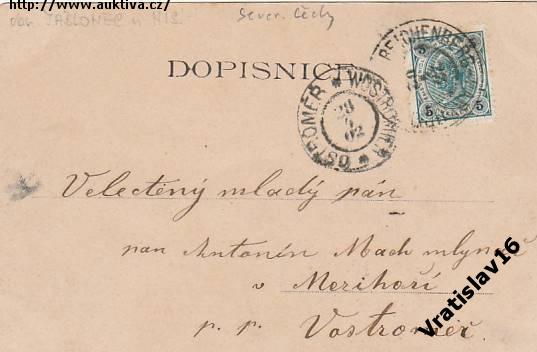 http://www.auktiva.cz/
obr. JABLONEC n NIS.
sever. Čechy
DOPISNICE
REICHENBERG
5 5
WOSTROMĚŘ
OSTROMĚŘ
02
Velectěný mladý pán
pan Antonín Mach mlynář
v Mezihoří
p. p. Vostroměř
Vratislav16